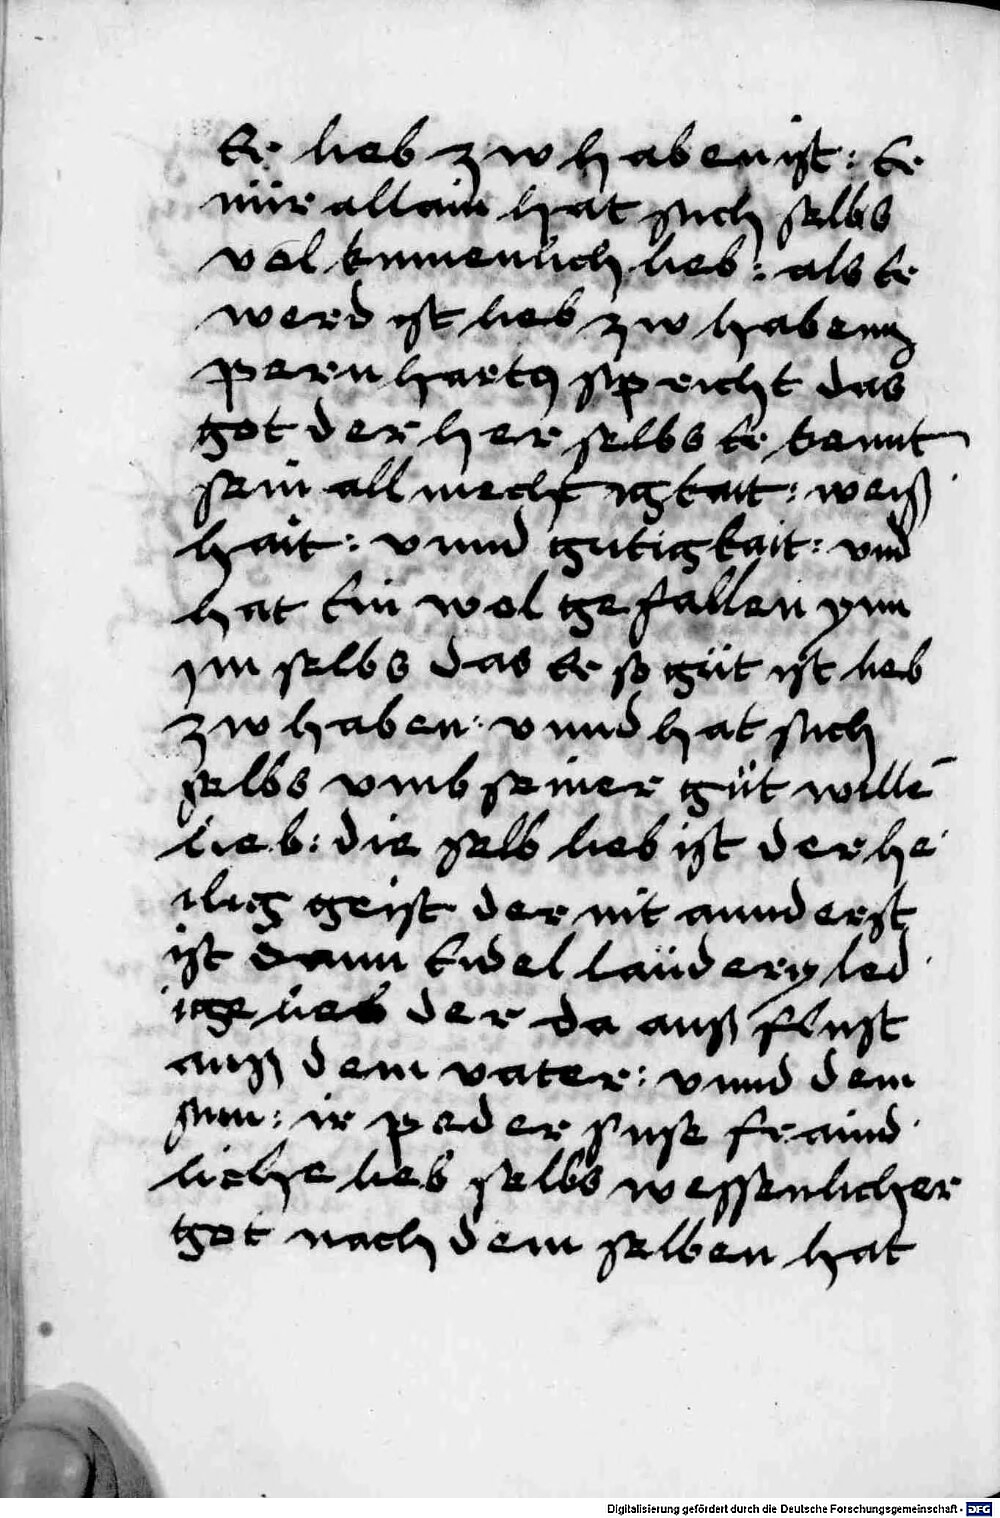 Er lieb zw haben ist: Er
nür allain hat sich selbs
volkumenlich lieb: als Er
werd ist lieb zw haben
pernhartq spricht das
got der her selbs Er kennt
sein allmechtigkait: weiß
hait: vnnd gutigkait: vnd
hat Ein wolgefallen ynn
ym selbs das Er so güt ist lieb
zw haben: vnnd hat sich
selbs vmb seiner güt willē
lieb: die selb lieb ist der he
ilig geist der nit annderst
ist dann Eidel laüdery led
ige lieb der da auß flust
auß dem vater: vnnd dem
sun: ir peder suse fraind
liche lieb selbs wessenlicher
got nach dem selben hat
Digitalisierung gefördert durch die Deutsche Forschungsgemeinschaft - DFG